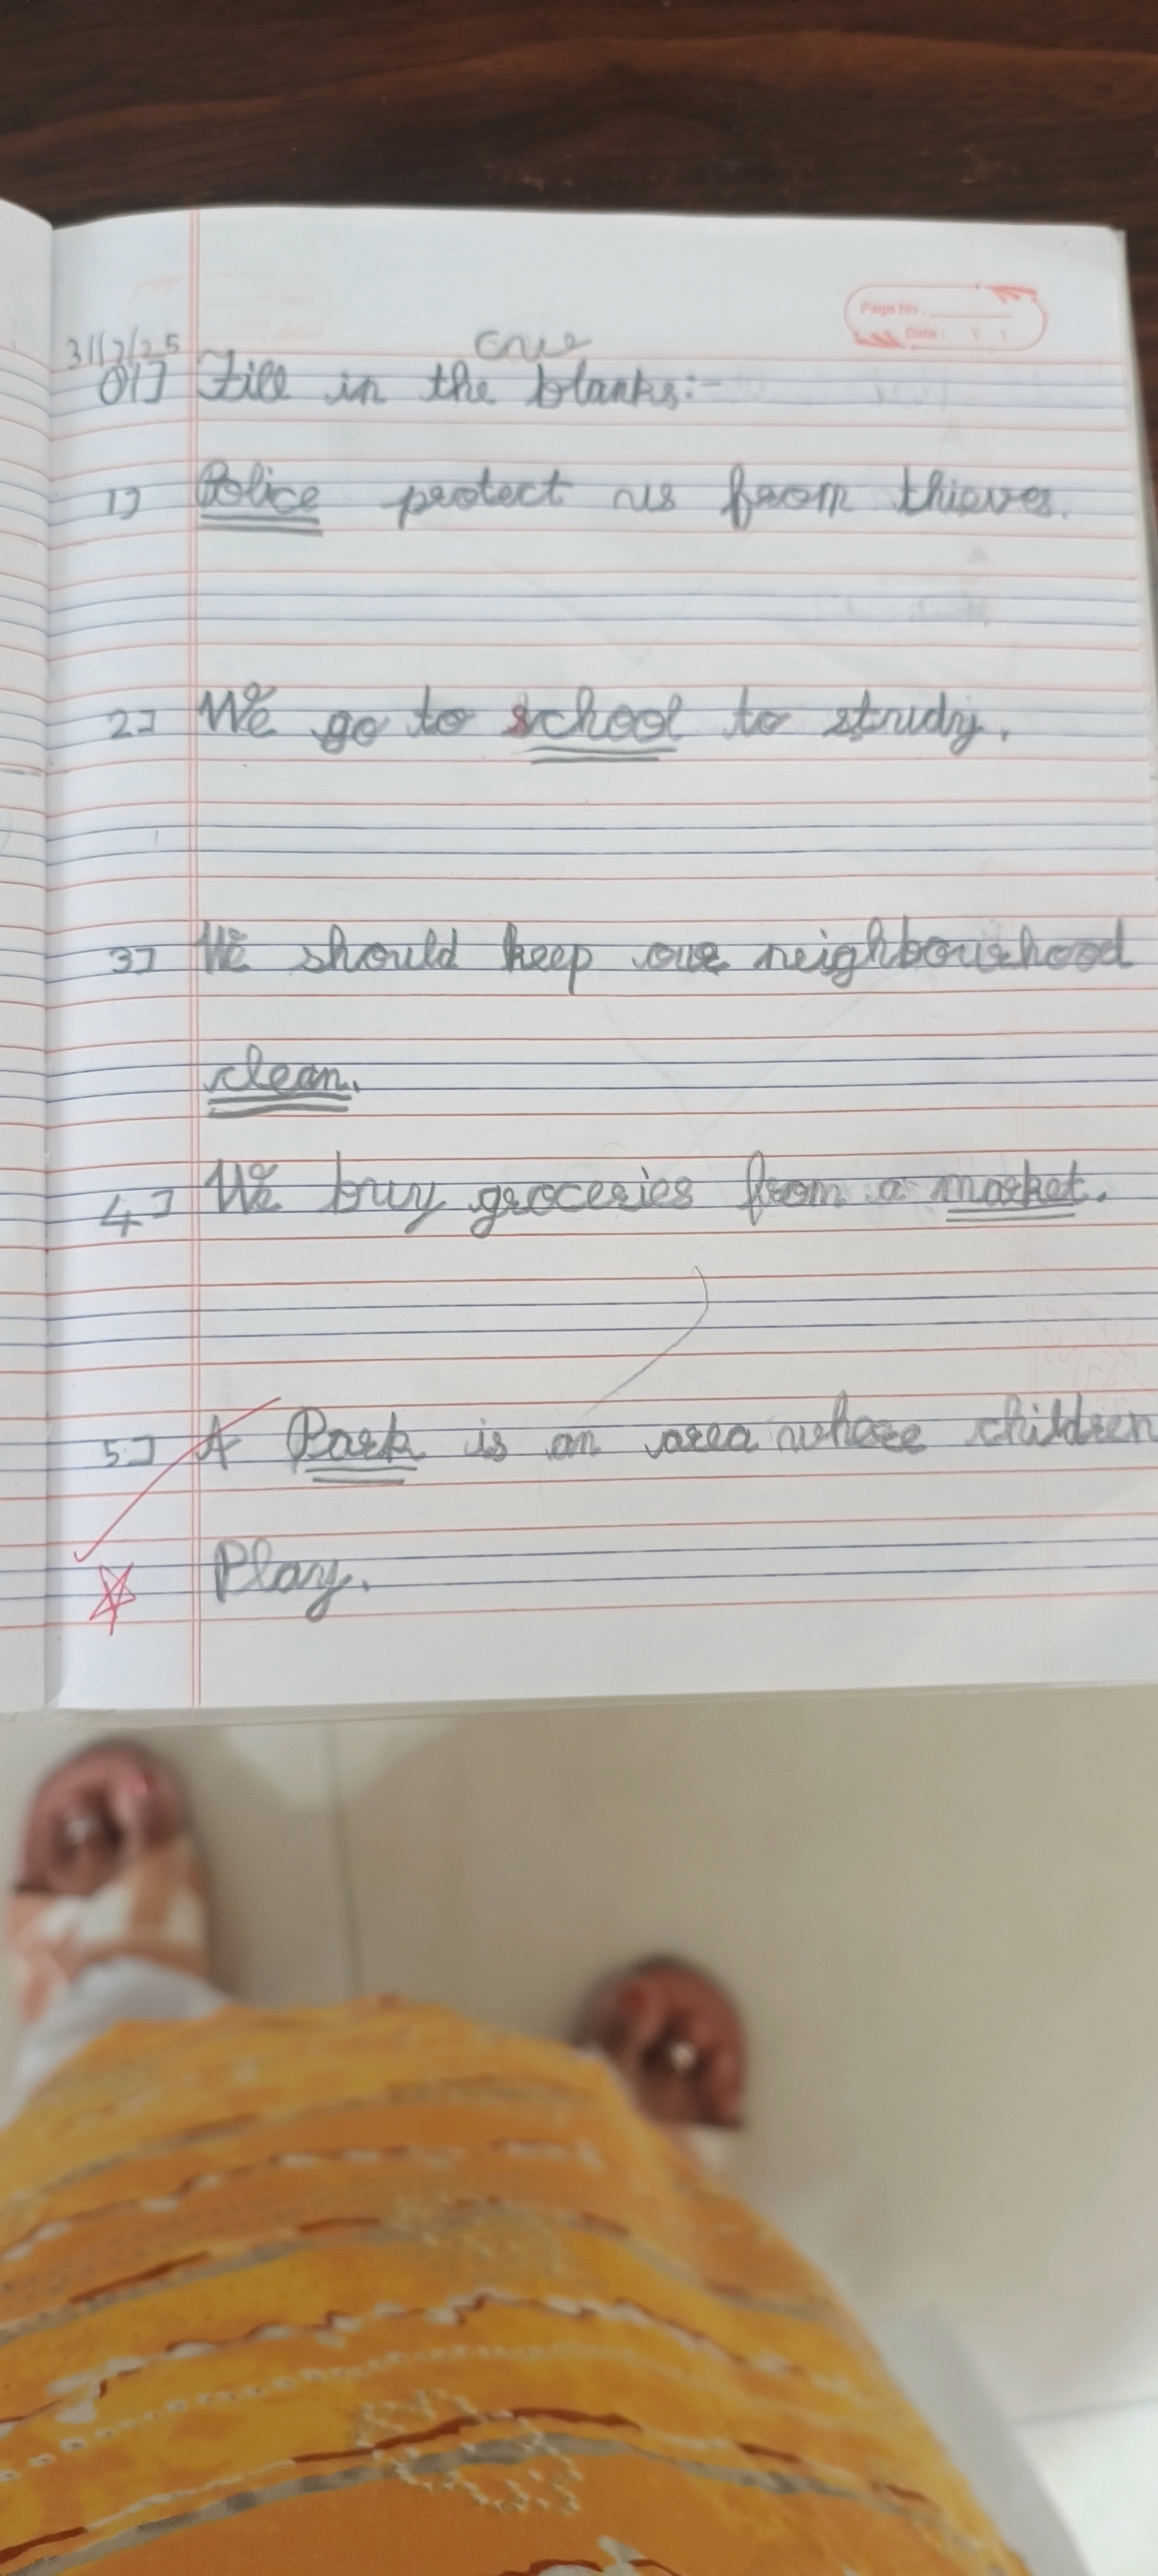 Page No.
Date:
31/7/25 CRW
Q1] Fill in the blanks:-
1] Police protect us from thieves.
2] We go to school to study.
3] We should keep our neighbourhood
clean.
4] We buy groceries from a market.
5] A Park is an area where children
Play.